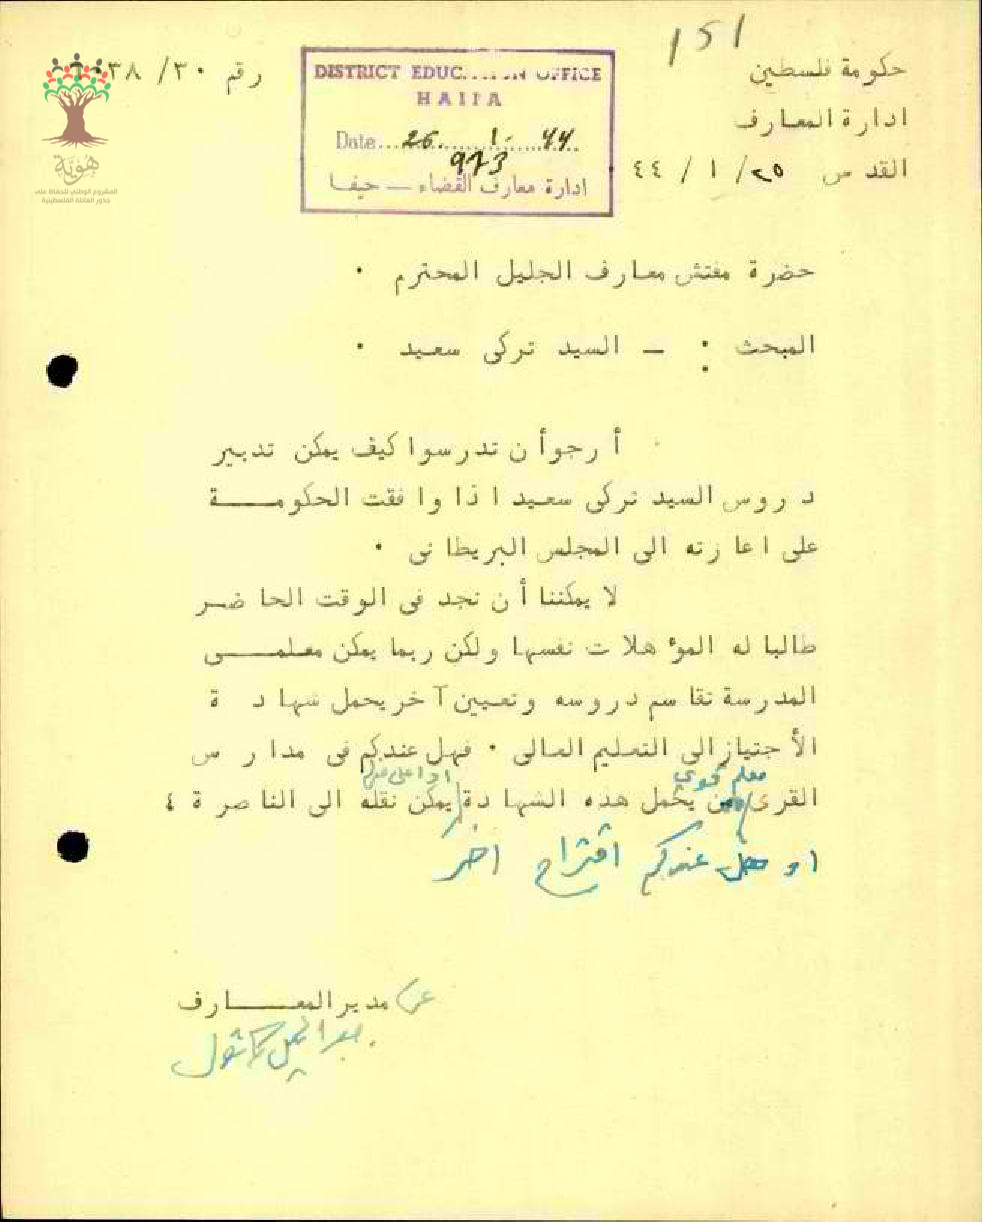 151
حكومة فلسطين
ادارة المعارف
القدس ٢٥/ ١ / ٤٤
رقم ٣٠/
DISTRICT EDUCATION OFFICE
HAIFA
Date...26.....1-....44
973
ادارة معارف القضاء — حيفا
هوية
المشروع الوطني للحفاظ على
جذور العائلة الفلسطينية
حضرة مفتش معارف الجليل المحترم ٠
المبحث : — السيد تركى سعيد ٠
أرجو أن تدرسوا كيف يمكن تدبير
دروس السيد تركى سعيد اذا وافقت الحكومة
على اعارته الى المجلس البريطانى ٠
لا يمكننا أن نجد فى الوقت الحاضر
طالبا له المؤهلات نفسها ولكن ربما يمكن معلمى
المدرسة تقاسم دروسه وتعيين آخر يحمل شهادة
الأجتياز الى التعليم العالى ٠ فهل عندكم فى مدارس
معلم قوي او اعلى منها
القرى من يحمل هذه الشهادة يمكن نقله الى الناصرة ٤
او هل عندكم اقتراح اخر
عن مدير المعارف
جبرائيل كاتول